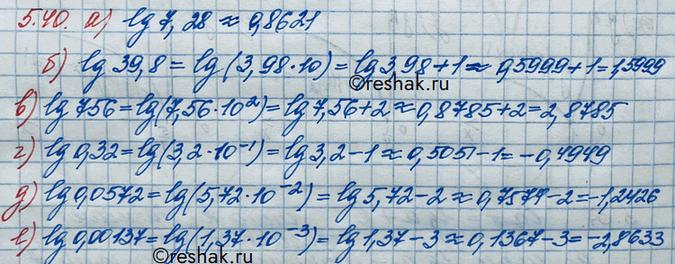 5.40. а) lg 7,28 ≈ 0,8621
б) lg 39,8 = lg (3,98·10) = lg 3,98 + 1 ≈ 0,5999 + 1 = 1,5999
©reshak.ru
в) lg 756 = lg (7,56·10²) = lg 7,56 + 2 ≈ 0,8785 + 2 = 2,8785
г) lg 0,32 = lg (3,2·10⁻¹) = lg 3,2 − 1 ≈ 0,5051 − 1 = −0,4949
д) lg 0,0572 = lg (5,72·10⁻²) = lg 5,72 − 2 ≈ 0,7574 − 2 = −1,2426
е) lg 0,00137 = lg (1,37·10⁻³) = lg 1,37 − 3 ≈ 0,1367 − 3 = −2,8633
©reshak.ru